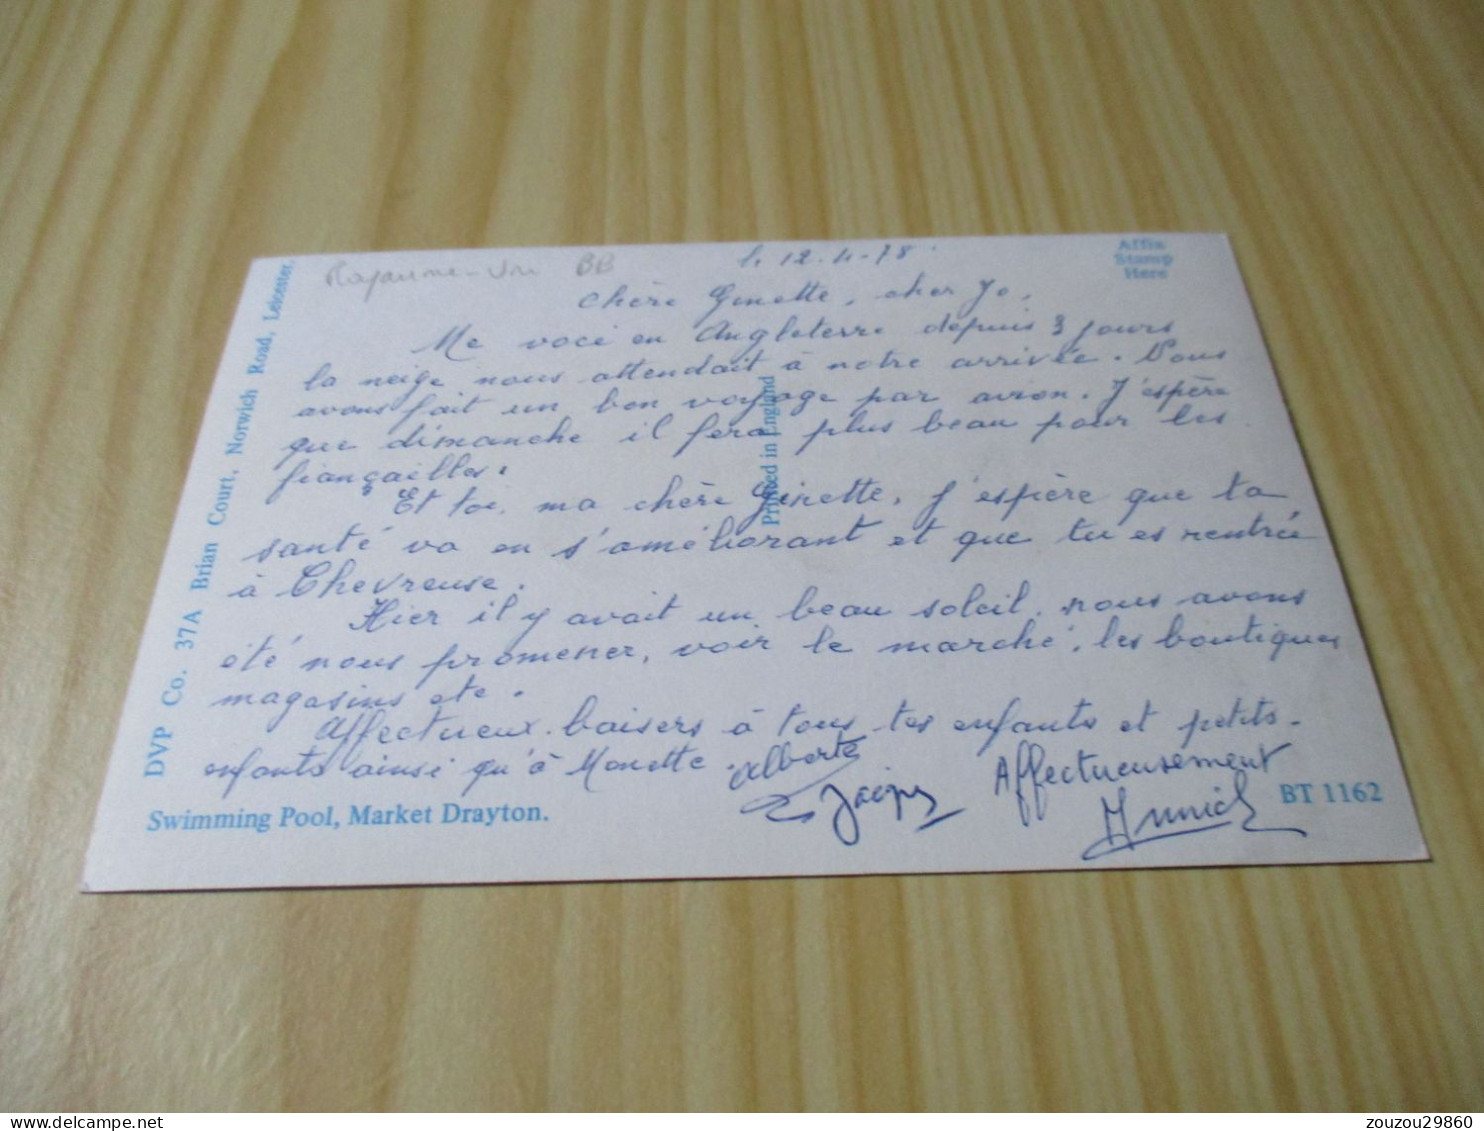 Royaume-Uni BB
le 12.4.78.
Affix
Stamp
Here
Chère Ginette, cher Jo,
Me voici en Angleterre depuis 3 jours
la neige nous attendait à notre arrivée. Nous
avons fait un bon voyage par avion. J'espère
que dimanche il fera plus beau pour les
fiançailles.
Et toi, ma chère Ginette, j'espère que ta
santé va en s'améliorant et que tu es rentrée
à Chevreuse.
Hier il y avait un beau soleil. nous avons
été nous promener, voir le marché, les boutiques
magasins etc.
Affectueux baisers à tous tes enfants et petits-
enfants ainsi qu'à Monette. Alberte
Jacques
Affectueusement
Annick
DVP Co. 37A Brian Court, Norwich Road, Leicester.
Printed in England
Swimming Pool, Market Drayton.
BT 1162
zouzou29860